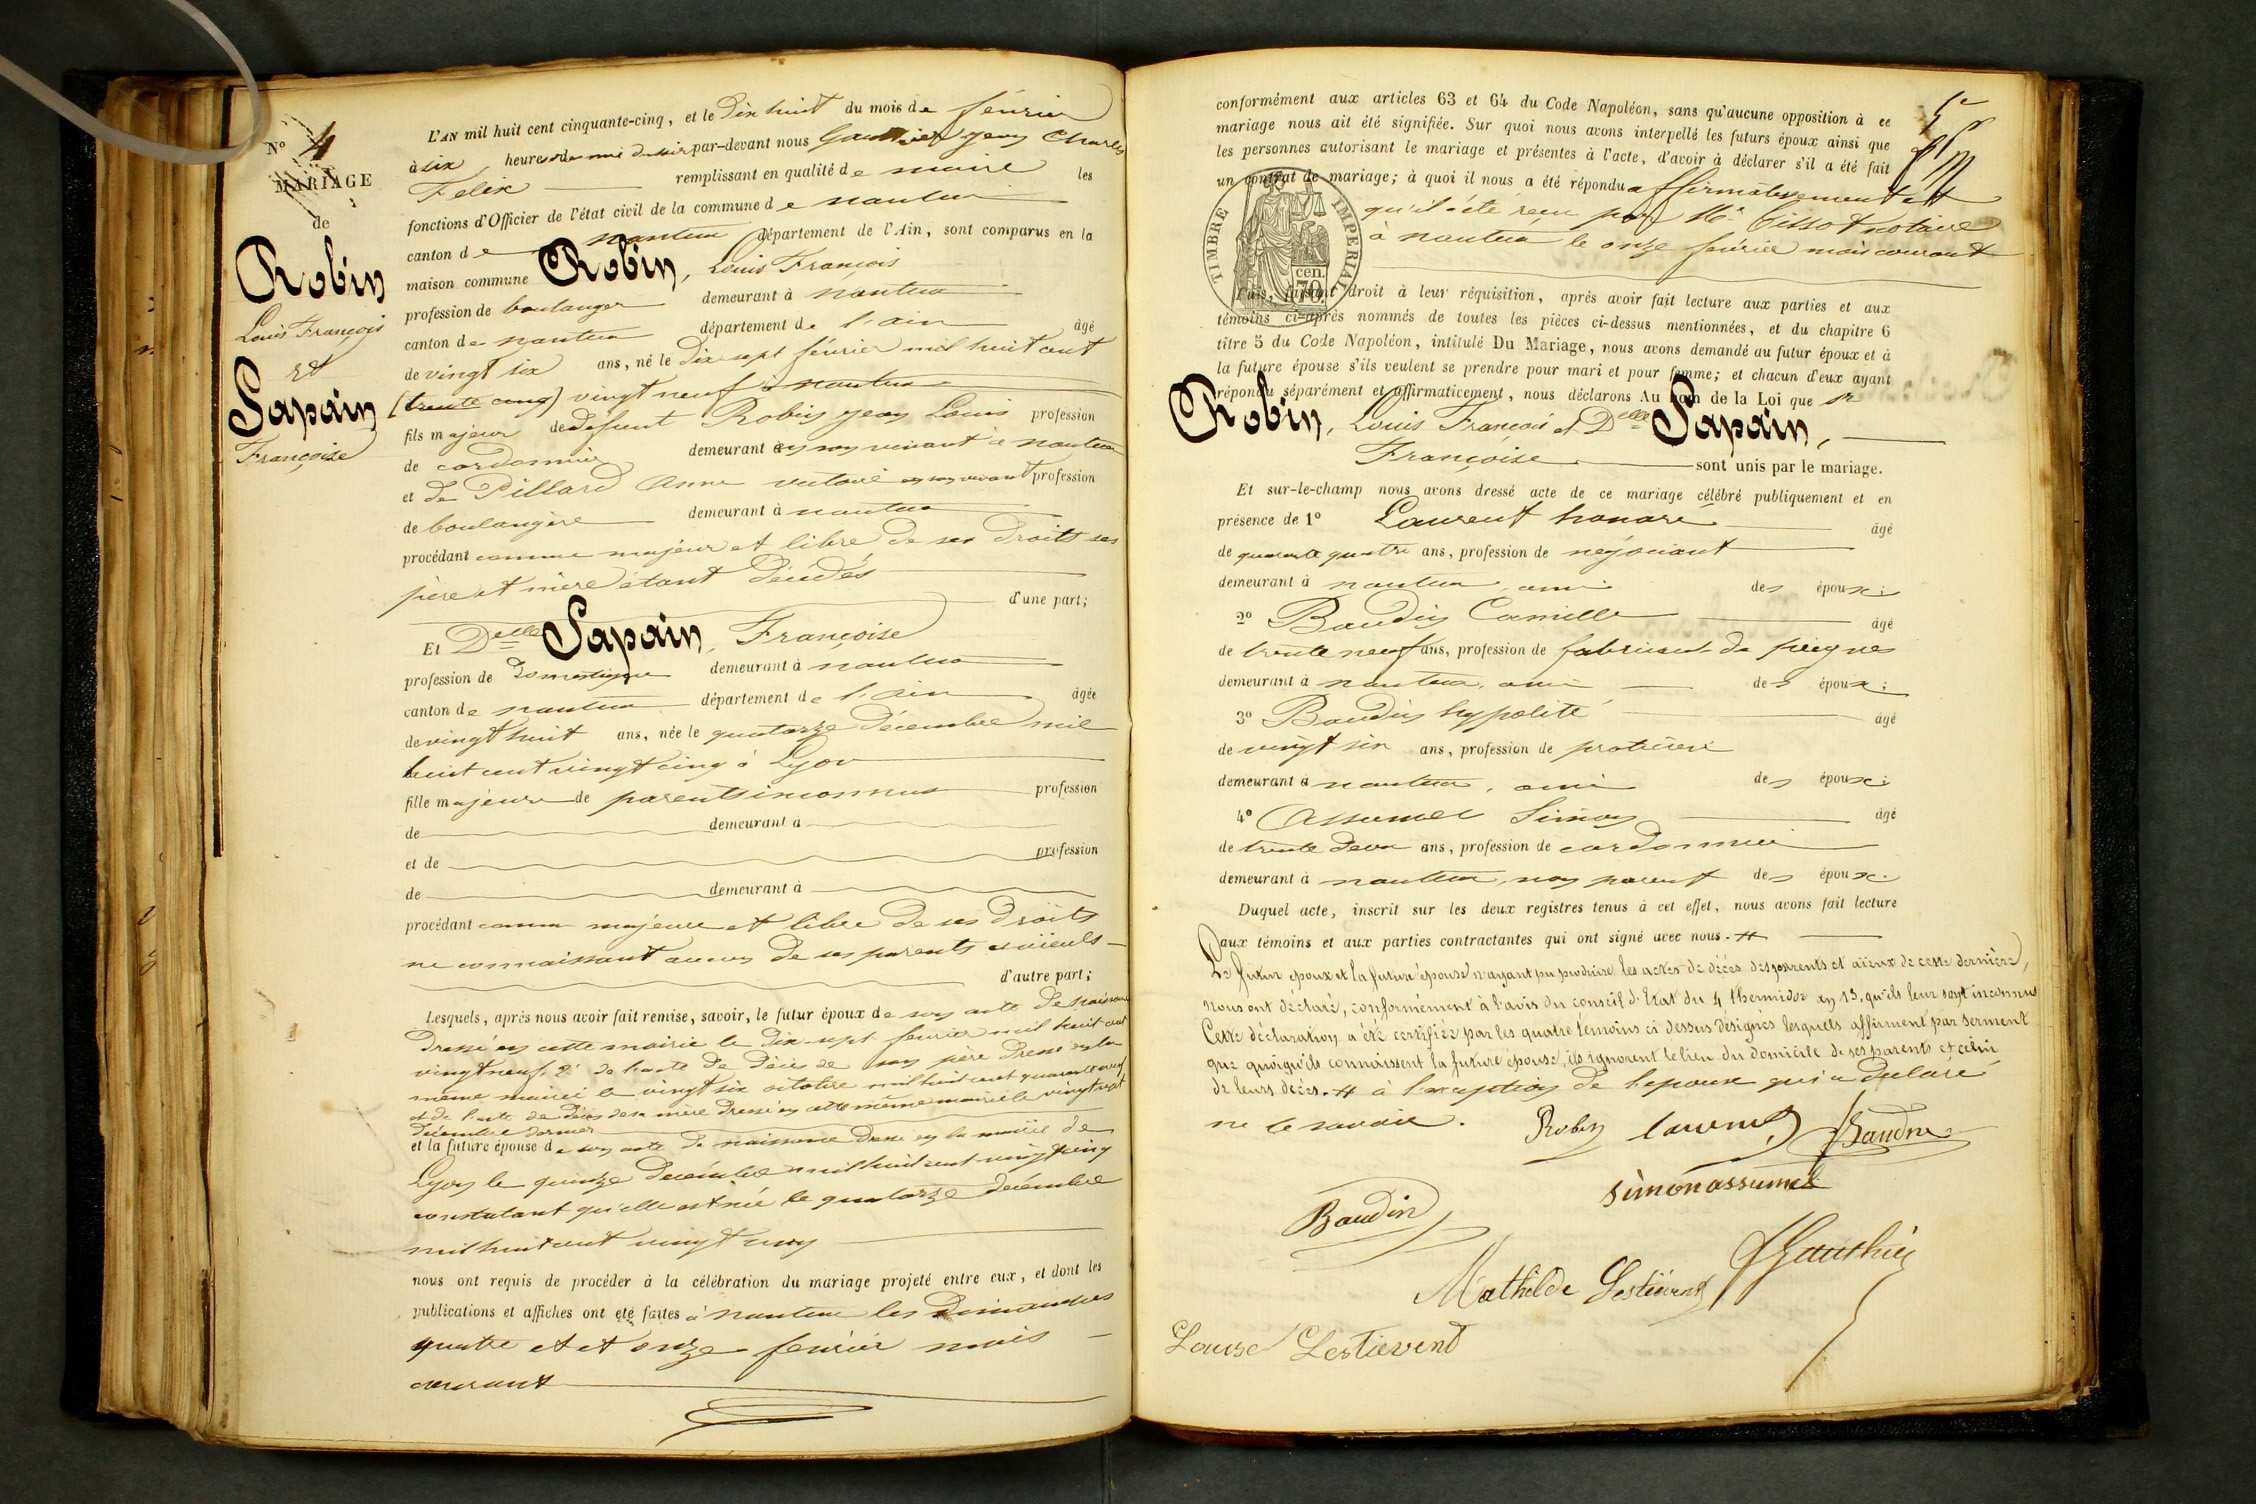 N° 4
MARIAGE
de
Robin
Louis François
et
Sapain
Françoise
L'AN mil huit cent cinquante-cinq, et le dix huit du mois de février
à six heures et demie du soir par-devant nous Gauthier Jean Charles
Felix remplissant en qualité de maire les
fonctions d'Officier de l'état civil de la commune de nantua
canton de nantua département de l'Ain, sont comparus en la
maison commune Robin, Louis François
profession de boulanger demeurant à nantua
canton de nantua département de l'ain âgé
de vingt six ans, né le dix sept février mil huit cent
(trente cinq) vingt neuf à nantua
fils majeur de défunt Robin Jean Louis profession
de cordonnier demeurant en son vivant à nantua
et de Pillard Anne victoire en son vivant profession
de boulangère demeurant à nantua
procédant comme majeur et libre de ses droits ses
père et mère étant décédés
d'une part;
Et Delle Sapain, Françoise
profession de Domestique demeurant à nantua
canton de nantua département de l'ain âgée
de vingt huit ans, née le quatorze décembre mil
huit cent vingt cinq à Lyon
fille majeure de parents inconnus profession
de demeurant à
et de profession
de demeurant à
procédant comme majeure et libre de ses droits
ne connaissant aucun de ses parents et aïeuls
d'autre part;
Lesquels, après nous avoir fait remise, savoir, le futur époux de son acte de naissance
dressé en cette mairie le dix sept fevrier mil huit cent
vingt neuf, 2° de l'acte de décès de son père dressé en la
même mairie le vingt six octobre mil huit cent quarante neuf
et de l'acte de décès de sa mère dressé en cette même mairie le vingt sept
décembre dernier
et la future épouse de son acte de naissance dressé en la mairie de
Lyon le quinze decembre mil huit cent vingt cinq
constatant qu'elle est née le quatorze decembre
mil huit cent vingt cinq
nous ont requis de procéder à la célébration du mariage projeté entre eux, et dont les
publications et affiches ont été faites à nantua les Dimanches
quatre et et onze fevrier mois
courant
conformément aux articles 63 et 64 du Code Napoléon, sans qu'aucune opposition à ce
mariage nous ait été signifiée. Sur quoi nous avons interpellé les futurs époux ainsi que
les personnes autorisant le mariage et présentes à l'acte, d'avoir à déclarer s'il a été fait
un contrat de mariage; à quoi il nous a été répondu affirmativement et
qu'il a été reçu par Me Tissot notaire
à nantua le onze février mois courant
TIMBRE IMPERIAL
cen. 70.
Puis, faisant droit à leur réquisition, après avoir fait lecture aux parties et aux
témoins ci-après nommés de toutes les pièces ci-dessus mentionnées, et du chapitre 6
titre 5 du Code Napoléon, intitulé Du Mariage, nous avons demandé au futur époux et à
la future épouse s'ils veulent se prendre pour mari et pour femme; et chacun d'eux ayant
répondu séparément et affirmativement, nous déclarons Au nom de la Loi que Sr
Robin, Louis François et Delle Sapain,
Françoise sont unis par le mariage.
Et sur-le-champ nous avons dressé acte de ce mariage célébré publiquement et en
présence de 1° Laurent honoré âgé
de quarante quatre ans, profession de négociant
demeurant à nantua, ami des époux;
2° Baudin Camille âgé
de trente neuf ans, profession de fabricant de peignes
demeurant à nantua, ami des époux;
3° Baudin hypolite âgé
de vingt six ans, profession de
demeurant à nantua, ami des époux;
4° Assumel Simon âgé
de trente deux ans, profession de cordonnier
demeurant à nantua, non parent des époux.
Duquel acte, inscrit sur les deux registres tenus à cet effet, nous avons fait lecture
aux témoins et aux parties contractantes qui ont signé avec nous.
Le futur époux et la future épouse n'ayant pu produire les actes de décès des parents et aïeux de cette dernière,
nous ont déclaré, conformément à l'avis du conseil d'Etat du 4 thermidor an 13, qu'ils leur sont inconnus
Cette déclaration a été certifiée par les quatre témoins ci dessus désignés lesquels affirment par serment
que quoiqu'ils connaissent la future épouse, ils ignorent le lieu du domicile de ses parents et celui
de leurs décès. à l'exception de l'epoux qui a declaré
ne le savoir. Robin Laurent Baudin
simon assumel
Baudin
Mathilde Lestievent Gauthier
Louise Lestievent